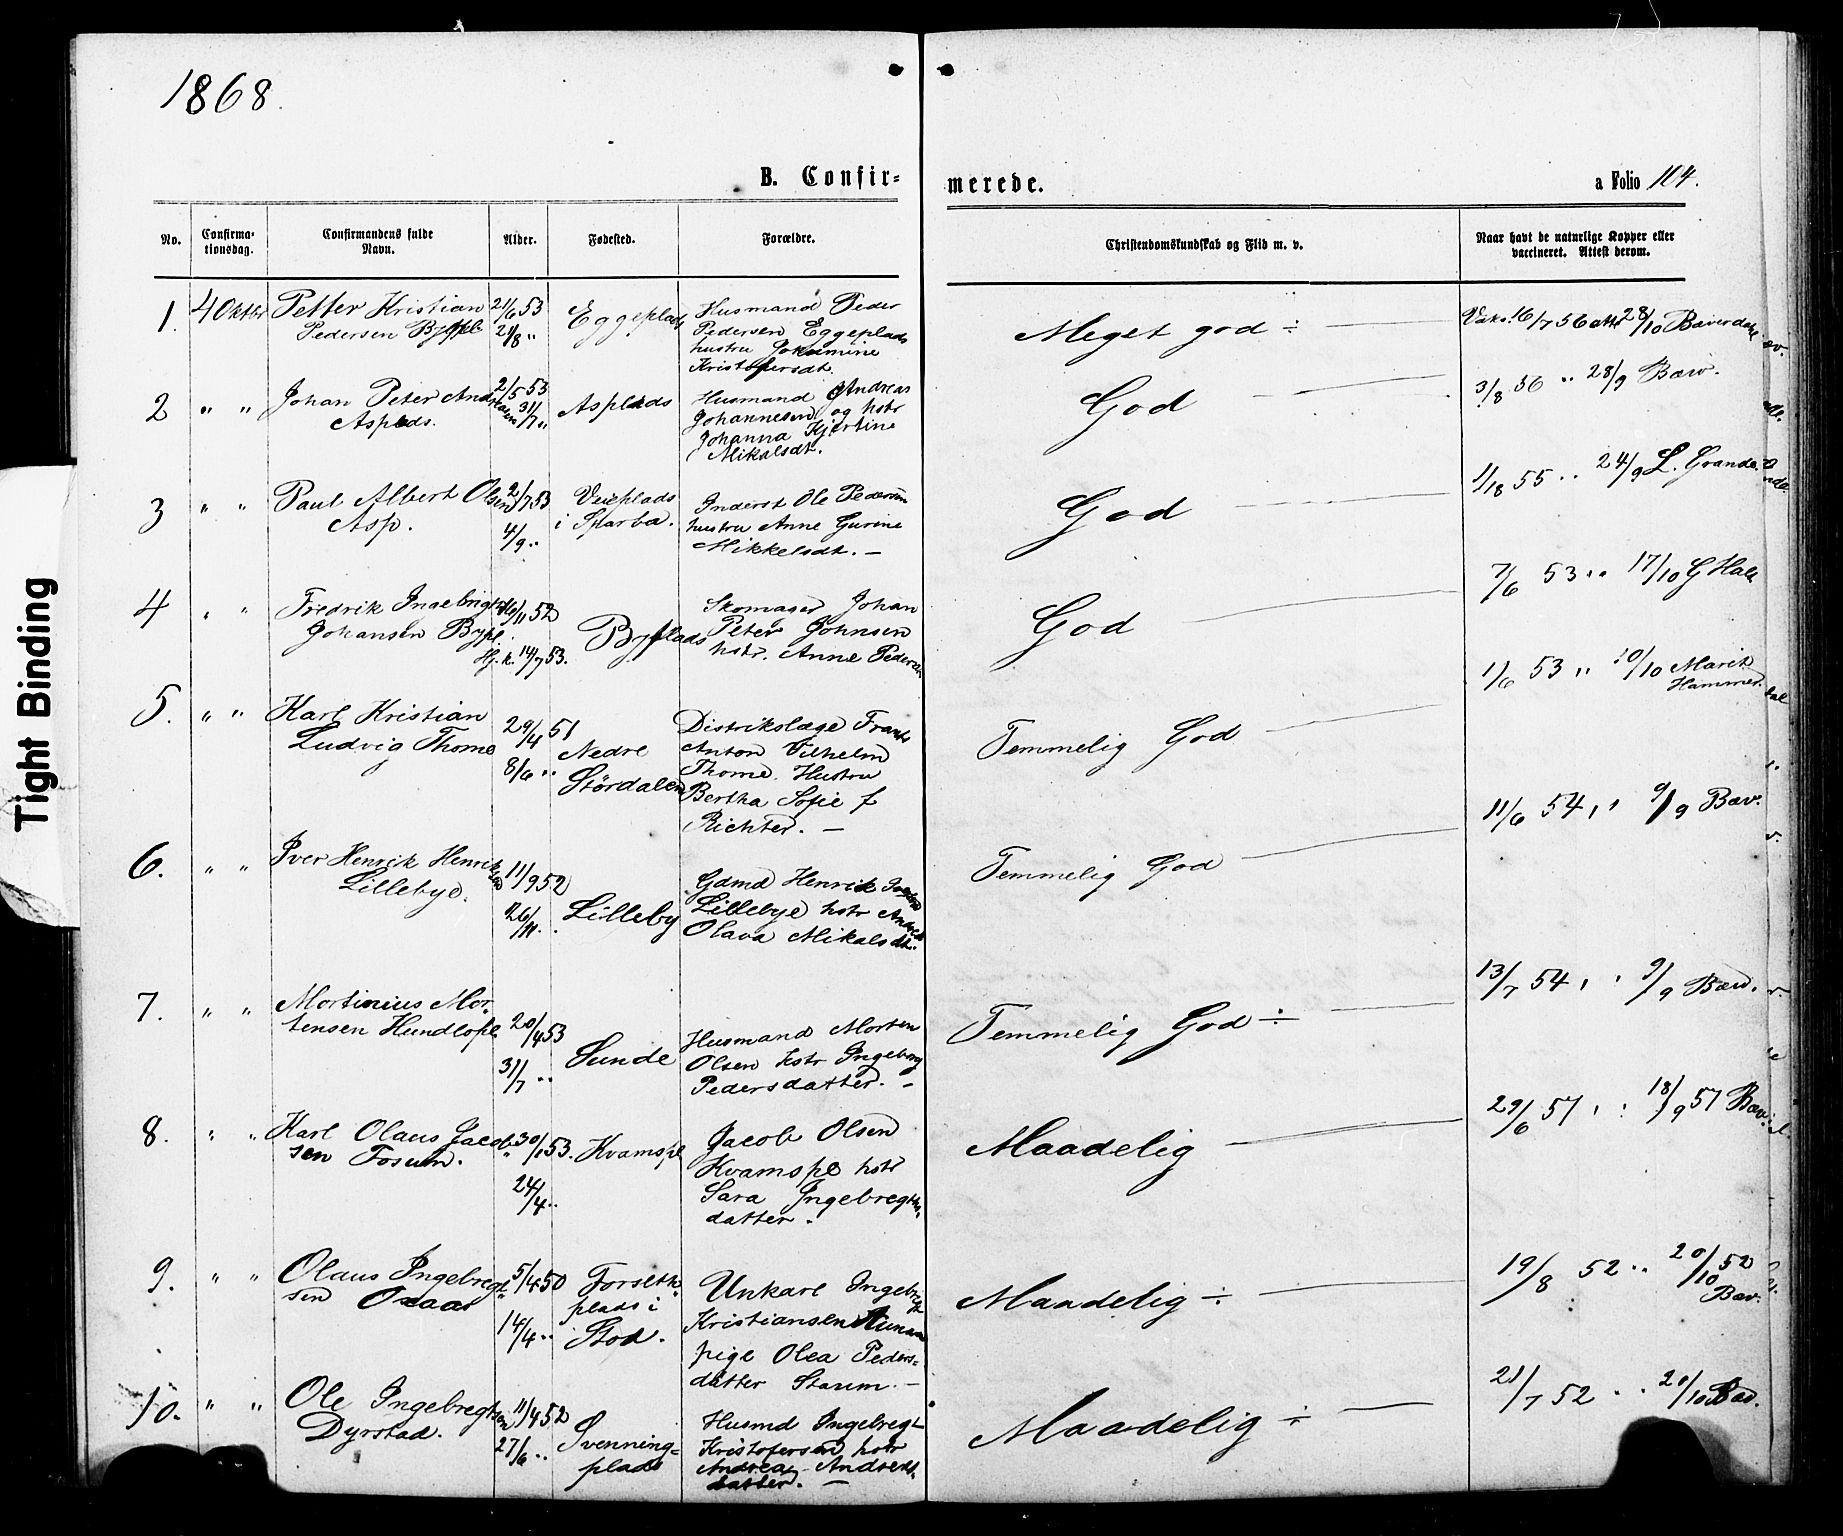 1868.
B. Confir=
merede.
a Folio 104.
No.
Confirma-
tionsdag.
Confirmandens fulde
Navn.
Alder.
Fødested.
Forældre.
Christendomskundskab og Flid m. v.
Naar havt de naturlige Kopper eller
vaccineret. Attest derom.
1. 4 Oktbr
Petter Kristian
Pedersen Bypl
21/6 53
21/8 "
Eggeplads
Husmand Peder
Pedersen Eggeplads
hustru Jokumine
Kristofersdt.
Meget god ÷
Vaks. 16/7 56 att 28/10 Baverdahl
2 " "
Johan Peter Andreasen
Asplads.
2/5 53
31/7 "
Asplads
Husmand Andreas
Johannesen og hstr
Johanna Kjerstine
Mikalsdt.
God
3/8 56 " 28/9 Bæv.
3 " "
Paul Albert Olsen
Asp.
2/7 53
4/9 "
Veieplads
i Sparbo.
Inderst Ole Pedersen
hustru Anne Gurine
Mikkelsdt. —
God
55 " 24/9 L. Grande.
4 " "
Fredrik Ingebrigt
Johansen Bypl.
16/11 52
Hj. k. 14/7 53.
Byplads
Skomager Johan
Peter Johnsen
hstr. Anne Pedersdt
God
7/6 53 " 17/10 G Hall
5. " "
Karl Kristian
Ludvig Thome
29/4 51
8/6 "
Nedre
Stördalen
Distrikslæge Frants
Anton Vilhelm
Thome. Hustru
Bertha Sofie f
Richter. —
Temmelig God
1/6 53 " 10/10 Marit
Hammer.
6. " "
Iver Henrik Henriksen
Lillebye.
11/9 52
26/11 "
Lilleby
Gdmd Henrik
Lillebye hstr
Olava Mikalsdt.
Temmelig God
11/6 54 " 9/9 Bæv.
7. " "
Mortinius Mor-
tensen Hundlopl.
20/4 53
31/7 "
Sunde
Husmand Morten
Olsen hstr Ingeborg
Pedersdatter. —
Temmelig God ÷
13/7 54 " 9/9 Bæv.
8. " "
Karl Olaus Jacob-
sen Fosum.
30/1 53.
24/4 "
Kvamspl
Jacob Olsen
Kvamspl hstr
Sara Ingebregts-
datter.
Maadelig
29/6 57 " 18/9 57 Bæv.
9. " "
Olaus Ingebregt-
sen Oxaas
5/4 50
14/4 "
Forseth-
plads i
Stod.
Unkarl Ingebregt
Kristiansen
pige Olea Peders=
datter Starem. —
Maadelig ÷
19/8 52 " 20/10 52
Bæv.
10. " "
Ole Ingebregtsen
Dyrstad.
11/4 52
27/6 "
Svenning=
plads
Husmd Ingebregt
Kristofersen hstr
Andrea Andreas-
datter. —
Maadelig ÷
21/7 52 " 20/10 Bæv.
Tight Binding